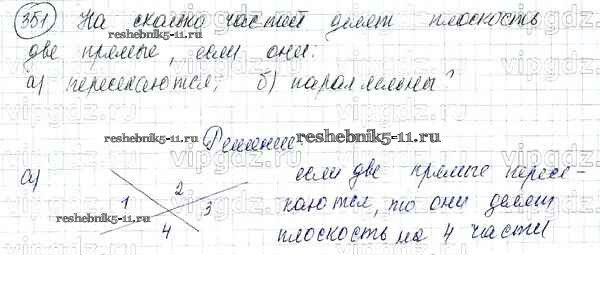 351 На сколько частей делят плоскость
reshebnik5-11.ru
две прямые, если они:
а) пересекаются; б) параллельны?
reshebnik5-11.ru
Решение:
reshebnik5-11.ru
vipgdz.ru
а) если две прямые пересе-
1 2 3 4
каются, то они делят
reshebnik5-11.ru
плоскость на 4 части